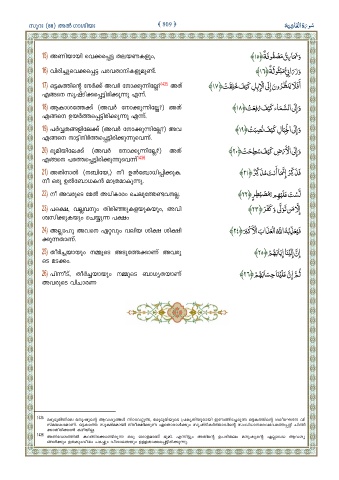 സൂറ: (88) അൽ ഗാശിയഃ ﴾ 809 ﴿ سورة الغاشية
15) അണിയായി വെക്കപ്പെട്ട തലയണകളും, وَنَمَارِقُ مَصْفُوفَةٌ ﴿١٥﴾
16) വിരിച്ചുവെക്കപ്പെട്ട പരവതാനികളുമുണ്ട്. وَزَرَابِيُّ مَبْثُوثَةٌ ﴿١٦﴾
17) ഒട്ടകത്തിന്റെ നേർക്ക് അവർ നോക്കുന്നില്ലേ? അത് أَفَلَا يَنظُرُونَ إِلَى الْإِبِلِ كَيْفَ خُلِقَتْ ﴿١٧﴾
എങ്ങനെ സൃഷ്ടിക്കപ്പെട്ടിരിക്കുന്നു എന്ന്.
18) ആകാശത്തേക്ക് (അവർ നോക്കുന്നില്ലേ?) അത് وَإِلَى السَّمَاءِ كَيْفَ رُفِعَتْ ﴿١٨﴾
എങ്ങനെ ഉയർത്തപ്പെട്ടിരിക്കുന്നു എന്ന്.
19) പർവ്വതങ്ങളിലേക്ക് (അവർ നോക്കുന്നില്ലേ?) അവ وَإِلَى الْجِبَالِ كَيْفَ نُصِبَتْ ﴿١٩﴾
എങ്ങനെ നാട്ടിനിർത്തപ്പെട്ടിരിക്കുന്നുവെന്ന്.
20) ഭൂമിയിലേക്ക് (അവർ നോക്കുന്നില്ലേ?) അത് وَإِلَى الْأَرْضِ كَيْفَ سُطِحَتْ ﴿٢٠﴾
എങ്ങനെ പരത്തപ്പെട്ടിരിക്കുന്നുവെന്ന്
21) അതിനാൽ (നബിയേ,) നീ ഉൽബോധിപ്പിക്കുക. فَذَكِّرْ إِنَّمَا أَنتَ مُذَكِّرٌ ﴿٢١﴾
നീ ഒരു ഉൽബോധകൻ മാത്രമാകുന്നു.
22) നീ അവരുടെ മേൽ അധികാരം ചെലുത്തേണ്ടവനല്ല. لَّسْتَ عَلَيْهِم بِمُصَيْطِرٍ ﴿٢٢﴾
23) പക്ഷെ, വല്ലവനും തിരിഞ്ഞുകളയുകയും, അവി إِلَّا مَن تَوَلَّىٰ وَكَفَرَ ﴿٢٣﴾
ശ്വസിക്കുകയും ചെയ്യുന്ന പക്ഷം
24) അല്ലാഹു അവനെ ഏറ്റവും വലിയ ശിക്ഷ ശിക്ഷി فَيُعَذِّبُهُ اللَّهُ الْعَذَابَ الْأَكْبَرَ ﴿٢٤﴾
ക്കുന്നതാണ്.
25) തീർച്ചയായും നമ്മുടെ അടുത്തേക്കാണ് അവരു إِنَّ إِلَيْنَا إِيَابَهُمْ ﴿٢٥﴾
ടെ മടക്കം.
26) പിന്നീട്, തീർച്ചയായും നമ്മുടെ ബാധ്യതയാണ് ثُمَّ إِنَّ عَلَيْنَا حِسَابَهُم ﴿٢٦﴾
അവരുടെ വിചാരണ